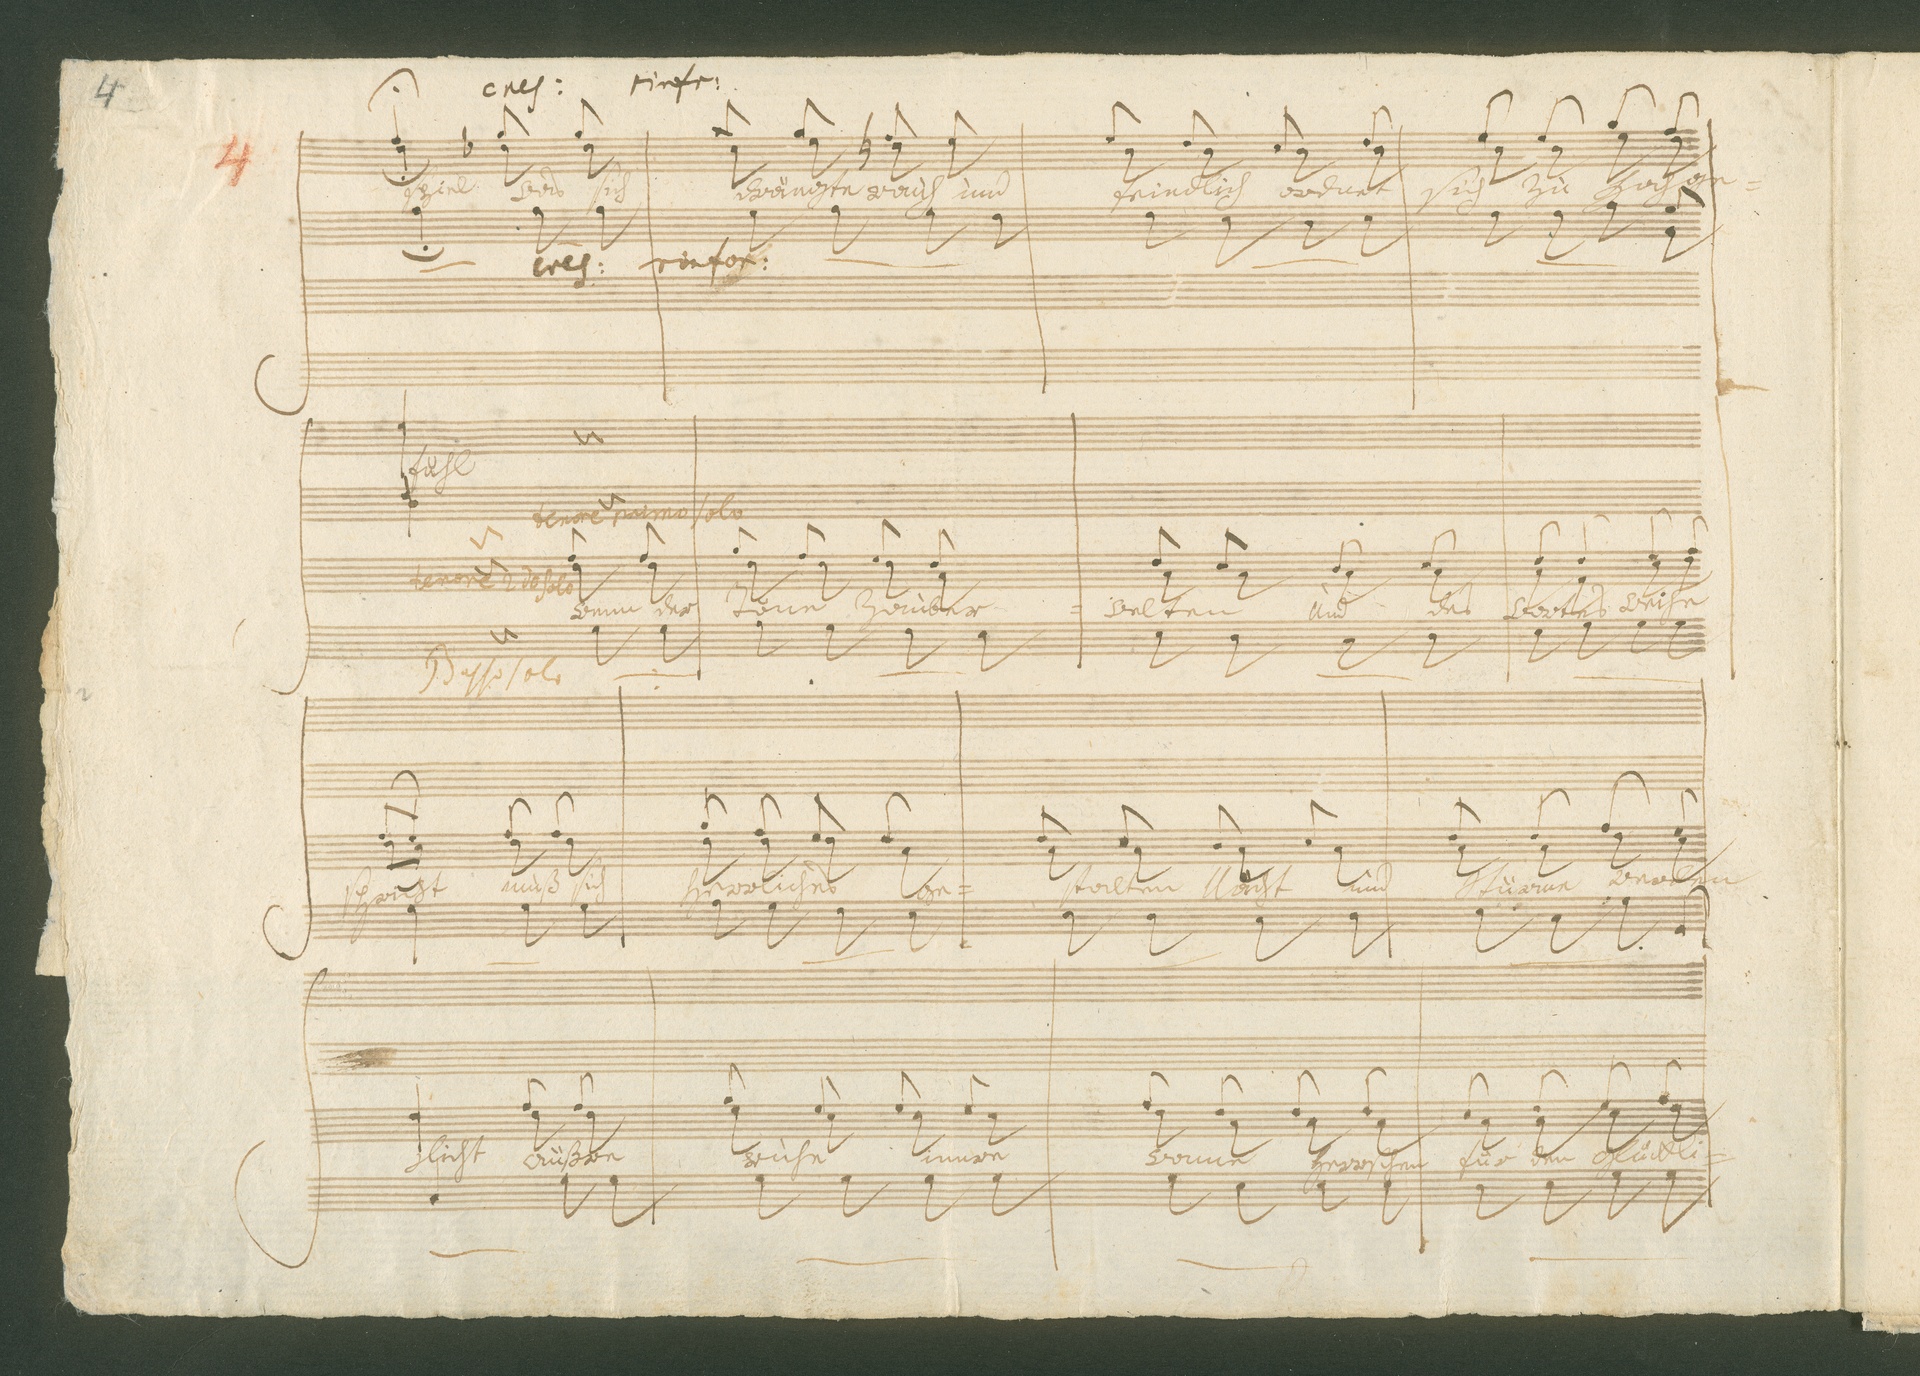 4
cresc: rinfr:
4
spiel was sich drängte rauh und feindlich ordnet sich zu Hochge=
cresc: rinfor:
fühl
tenore primo solo
tenore 2do solo
wenn der Töne Zauber = walten und des Wortes Weihe
Basso solo
spricht muß sich Herrliches ge= stalten Nacht und Stürme werden
licht äußre ruhe innre Wonne herrschen für den glückli=